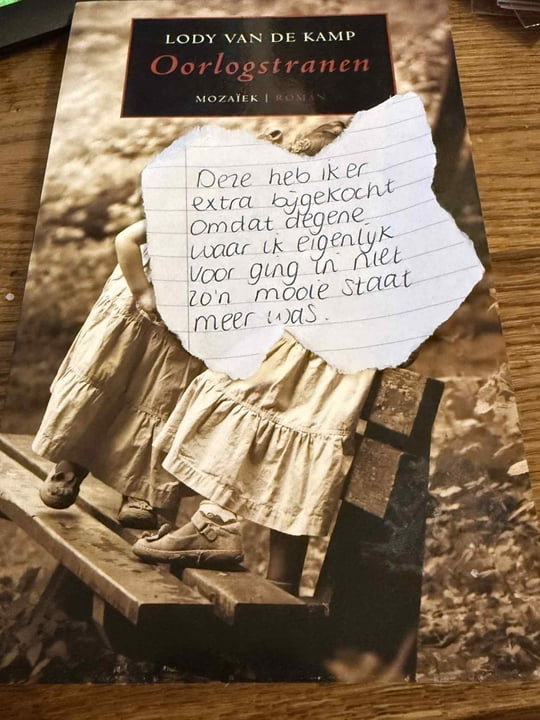 LODY VAN DE KAMP
Oorlogstranen
MOZAÏEK | ROMAN
Deze heb ik er
extra bijgekocht
omdat degene
waar ik eigenlijk
voor ging in niet
zo'n mooie staat
meer was.